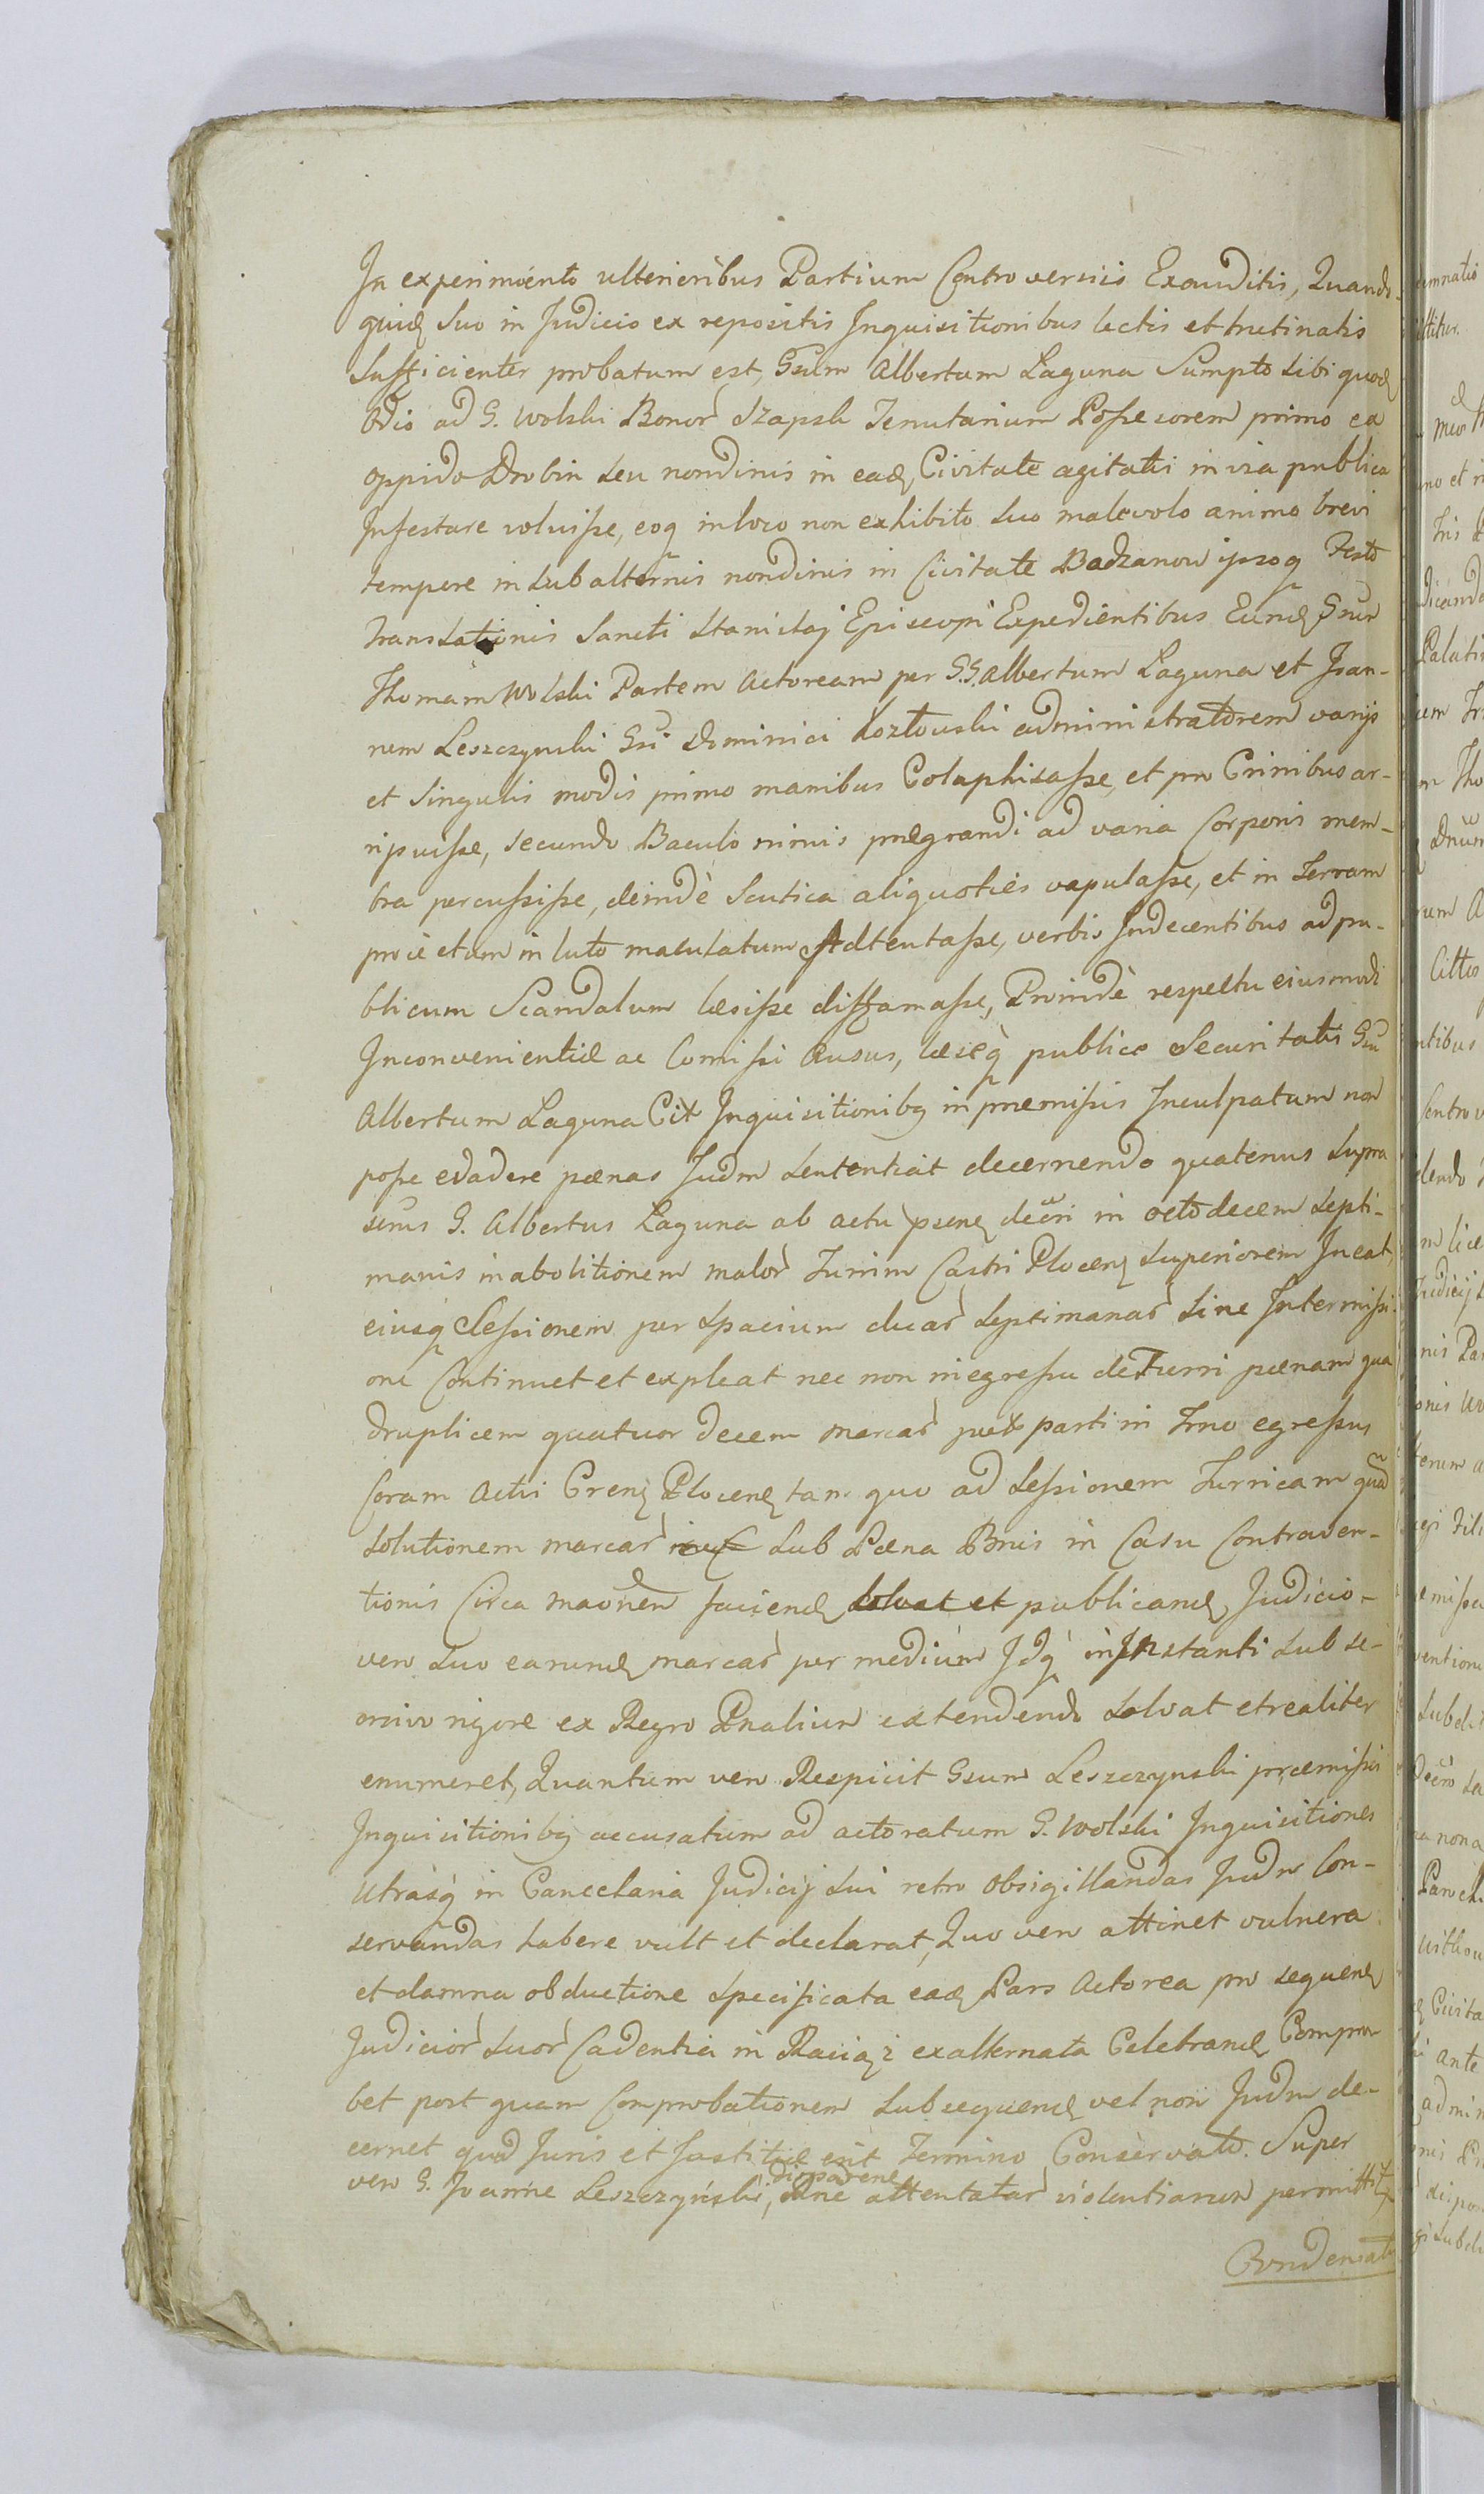 In experimento ulterioribus Partium Controversiis Exauditis, Quando-
quid Suo in Judicio ex repositis Inquisitionibus lectis et trutinatis
Sufficienter probatum est, Gsum Albertum Laguna Sumpto Sibi quod
Odio ad G. Wolski Bonor Szapsk Tenutarium Possessorem primo ex
oppido Drobin Seu nondinis in ead Civitate agitatis in via publica
Infestare voluisse, eoq in loco non exhibito Suo malevolo animo brevi
tempore in Subalternis nondinis in Civitate Badzanow ipsoq Festo
Translationis Sancti Stanislaj Episcopi Expedientibus Eund Gsum
Thomam Wolski Partem Actoream per G.G. Albertum Laguna et Joan-
nem Leszczynski Gsi Dominici Kozłowski administratorem varijs
et Singulis modis primo manibus Colaphisasse, et pro Crinibus ar-
ripuisse, secundo Baculo nimis prægrandi ad varia Corporis mem-
bra percussisse, deindè Scutica aliquoties vapulasse, et in terram
proiectum in luto maculatum Adtentasse, verbis Indecentibus ad pu-
blicum Scandalum læsisse diffamasse, Proindè respectu eiusmodi
Inconvenientiæ ac Comissi Ausus, læsæq publicæ Securitatis Gsu
Albertum Laguna Cit Inquisitionibq in præmissis Inculpatum non
posse evadere pænas Judm Sententiat decernendo quatenus Supra
senus G. Albertus Laguna ab actu psend decri in octodecem Septi-
manis in abolitionem malor Turrim Castri Plocen Superiorem Ineat,
eiusq Sessionem per Spacium duar Septimanar Sine Intermissi-
one Continuet et expleat nec non in egressu de Turri pænam qua
druplicem quatuor decem marcar juxt parti in Trno egressus
Coram Actis Cren Plocen tam quo ad Sessionem Turricam quad
Solutionem marcar Sub Pæna Bnis in Casu Contraven-
tionis Circa maonem faciend solvat et publicand, Judicio-
vero Suo earund marcar per medium Idq inInstanti Sub se-
missivo rigore ex Regro Pnalium extendendo Solvat et realiter
enumeret, Quantum vero Respicit Gsum Leszczynski præmissis
Inquisitionibq accusatum ad actoratum G. Wolski Inquisitiones
Utrasq in Cancelaria Judicij Sui retro Obsigillandas Judm Con-
servandas habere vult et declarat, Quo vero attinet vulnera
et damna obductione Specificata ead Pars Actorea pro sequend
Judicior Suor Cadentia in Raciąż exalternata Celebrand Compro-
bet post quam Comprobationem Subsequend vel non Judm de-
cernet quod Juris et Justitiæ erit Termino Conservato. Super
vero G. Joanne Leszczyński, dirparend One attentatar violentiarum permittit
Condemnatio